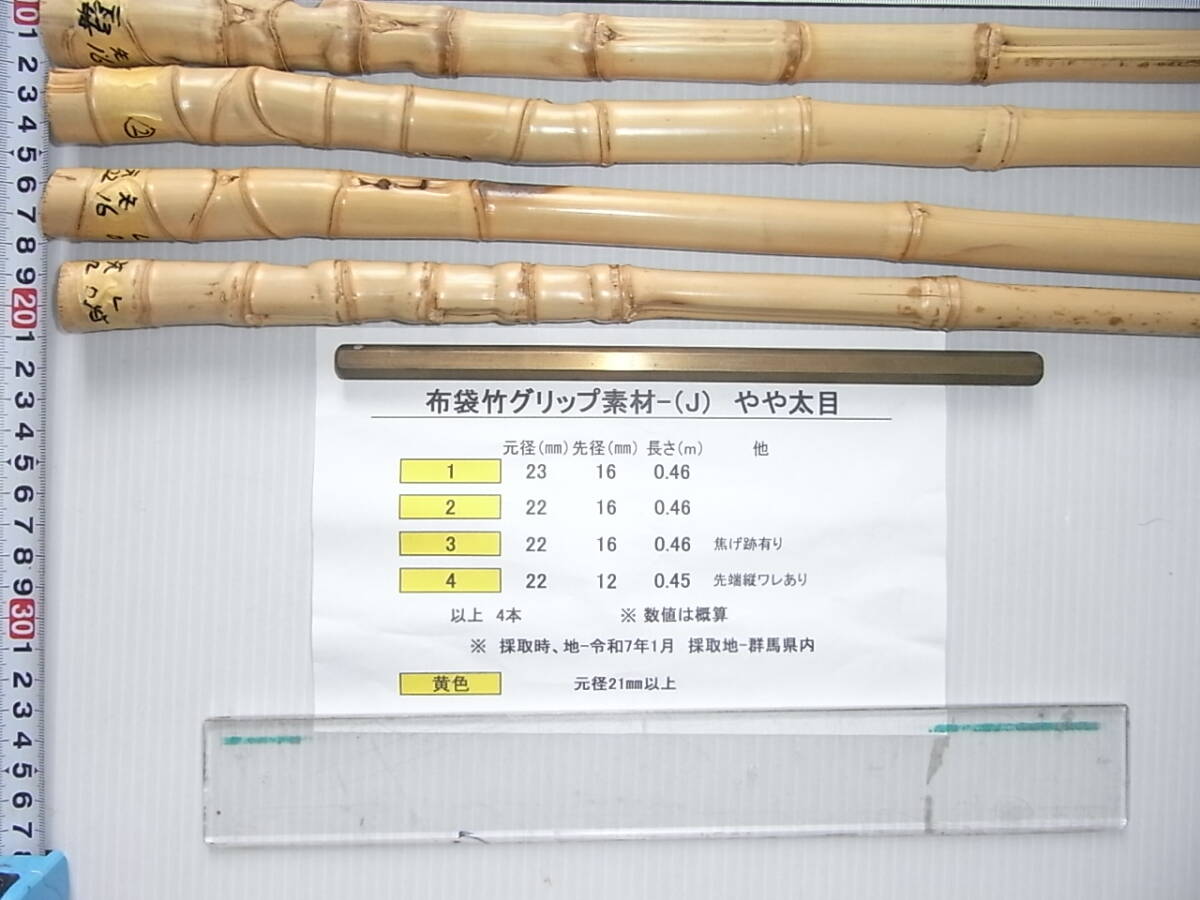 10
1
2
3
4
5
6
7
8
9
20
1
2
3
4
5
6
7
8
9
30
1
2
3
4
5
6
7
先16
②
先16
布袋竹グリップ素材-(J) やや太目
元径(㎜) 先径(㎜) 長さ(m) 他
1 23 16 0.46
2 22 16 0.46
3 22 16 0.46 焦げ跡有り
4 22 12 0.45 先端縦ワレあり
以上 4本 ※ 数値は概算
※ 採取時、地-令和7年1月 採取地-群馬県内
黄色 元径21㎜以上